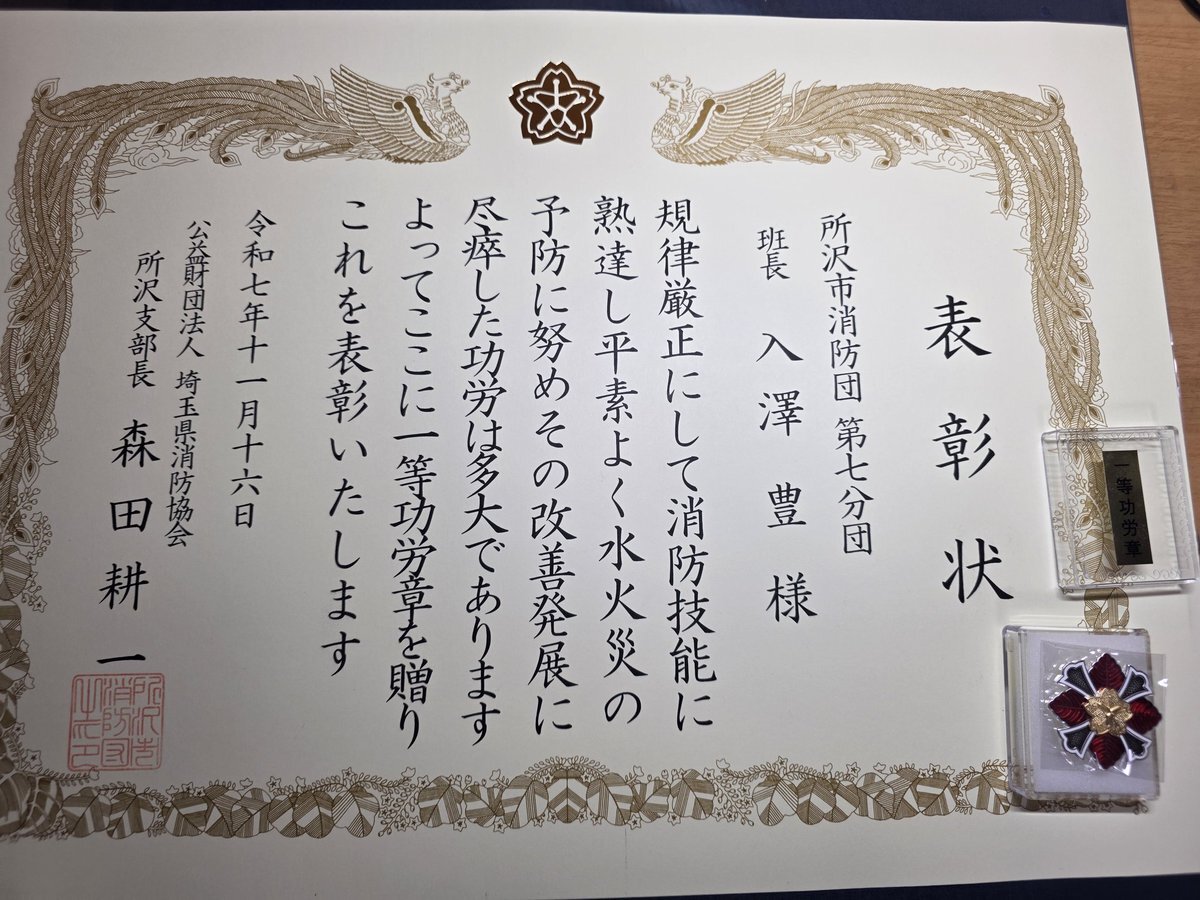 表彰状
所沢市消防団 第七分団
班長 入澤豊様
規律厳正にして消防技能に
熟達し平素よく水火災の
予防に努めその改善発展に
尽瘁した功労は多大であります
よってここに一等功労章を贈り
これを表彰いたします
令和七年十一月十六日
公益財団法人 埼玉県消防協会
所沢支部長 森田耕一
一等功労章